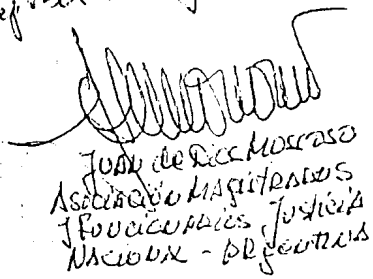 Juan de Dios Moscoso
Asociación Magistrados
y Funcionarios Justicia
Nacional - Argentina